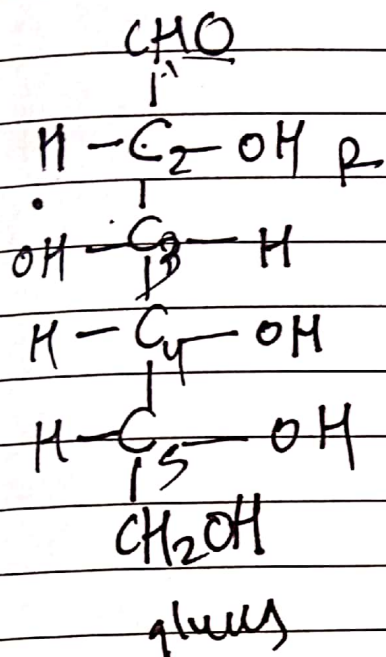 CHO
H - C2 - OH R
OH - C3 - H
H - C4 - OH
H - C5 - OH
CH2OH